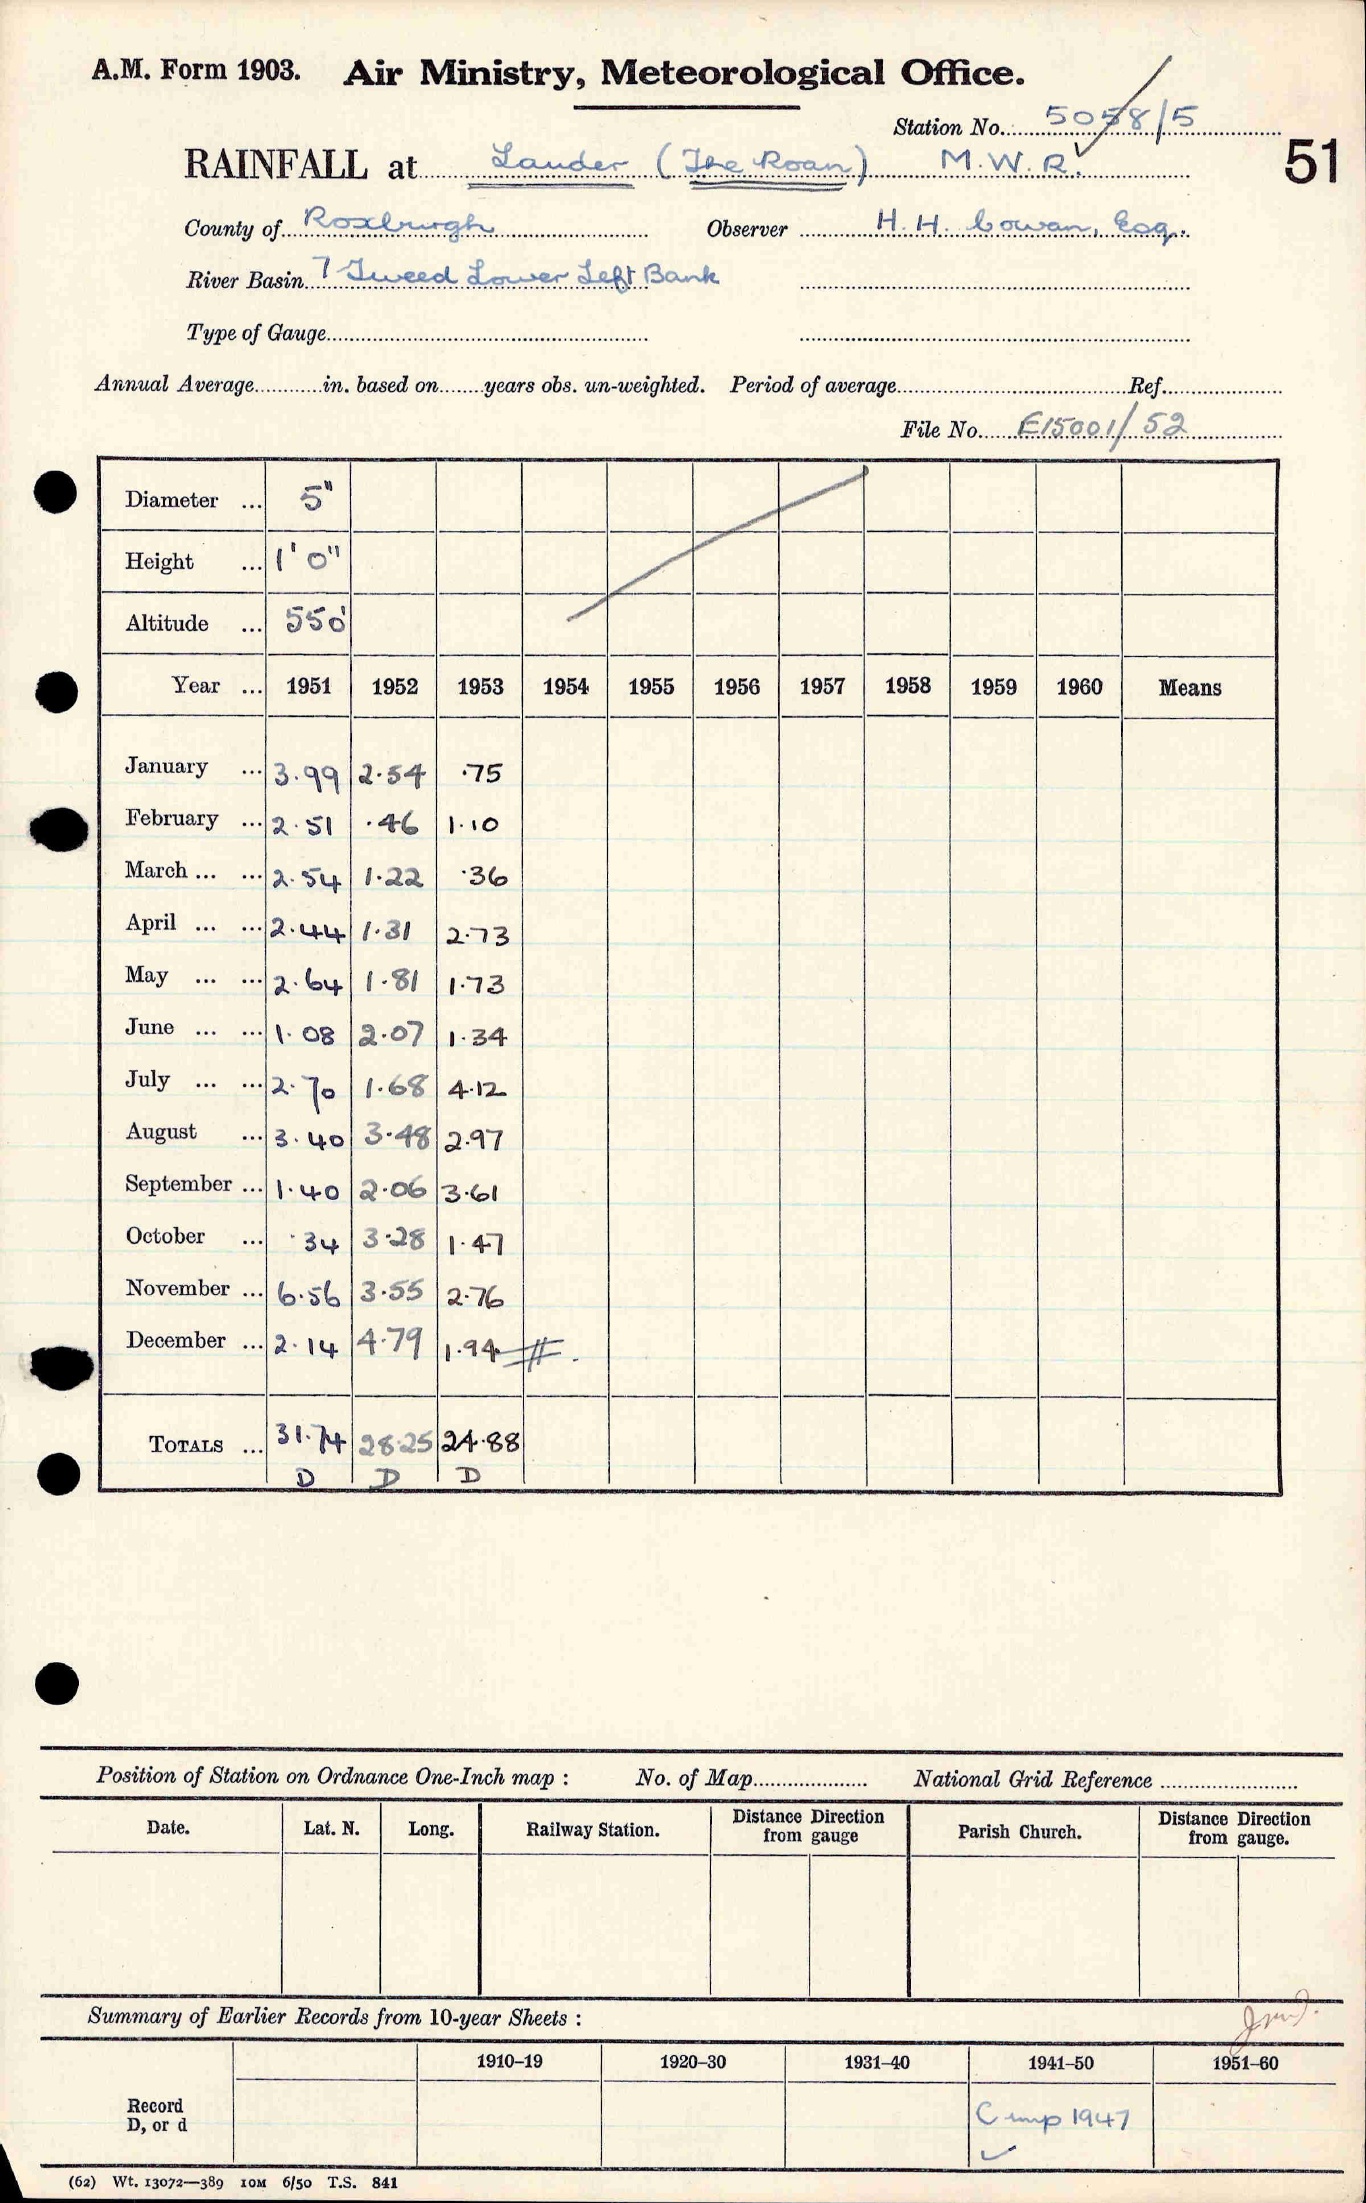 A.M. Form 1903. Air Ministry, Meteorological Office.
Station No. 5058/5
RAINFALL at Lauder (The Roan) M.W.R. 51
County of Roxburgh Observer H. H. Cowan, Esq.
River Basin 7 Tweed Lower Left Bank
Type of Gauge
Annual Average in. based on years obs. un-weighted. Period of average Ref.
File No. E15001/52
Diameter ... 5"
Height ... 1' 0"
Altitude ... 550'
Year ... 1951 1952 1953 1954 1955 1956 1957 1958 1959 1960 Means
January ... 3.99 2.54 .75
February ... 2.51 .46 1.10
March ... ... 2.54 1.22 .36
April ... ... 2.44 1.31 2.73
May ... ... 2.64 1.81 1.73
June ... ... 1.08 2.07 1.34
July ... ... 2.70 1.68 4.12
August ... 3.40 3.48 2.97
September ... 1.40 2.06 3.61
October ... .34 3.28 1.47
November ... 6.56 3.55 2.76
December ... 2.14 4.79 1.94
TOTALS ... 31.74 28.25 24.88
D D D
Position of Station on Ordnance One-Inch map : No. of Map National Grid Reference
Date. Lat. N. Long. Railway Station. Distance Direction from gauge Parish Church. Distance Direction from gauge.
Summary of Earlier Records from 10-year Sheets :
1910–19 1920–30 1931–40 1941–50 1951–60
Record
D, or d
1947
(62) Wt. 13072—389 10M 6/50 T.S. 841